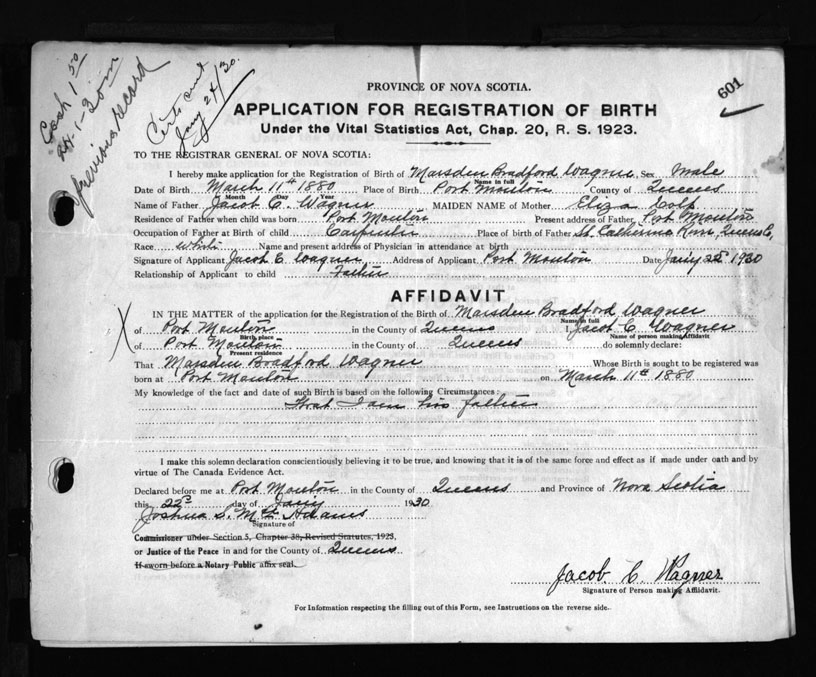 Cash 1.50
previous record
Certs sent
Jany 24/30.
601
PROVINCE OF NOVA SCOTIA.
APPLICATION FOR REGISTRATION OF BIRTH
Under the Vital Statistics Act, Chap. 20, R. S. 1923.
TO THE REGISTRAR GENERAL OF NOVA SCOTIA:
I hereby make application for the Registration of Birth of Marsden Bradford Wagner Sex Male
Name in full
Date of Birth March 11th 1880 Place of Birth Port Mouton County of Queens
Month Day Year
Name of Father Jacob C. Wagner MAIDEN NAME of Mother Eliza Colp
Residence of Father when child was born Port Mouton Present address of Father, Port Mouton
Occupation of Father at Birth of child Carpenter Place of birth of Father St. Catherine River, Queens Co,
Race White Name and present address of Physician in attendance at birth
Signature of Applicant Jacob C Wagner Address of Applicant Port Mouton Date Jany 22d 1930
Relationship of Applicant to child Father
AFFIDAVIT
IN THE MATTER of the application for the Registration of the Birth of Marsden Bradford Wagner
Name in full
of Port Mouton in the County of Queens I, Jacob C Wagner
Birth place Name of person making Affidavit
of Port Mouton in the County of Queens do solemnly declare:
Present residence
That Marsden Bradford Wagner Whose Birth is sought to be registered was
born at Port Mouton on March 11th 1880
My knowledge of the fact and date of such Birth is based on the following Circumstances:
That I am his father
I make this solemn declaration conscientiously believing it to be true, and knowing that it is of the same force and effect as if made under oath and by
virtue of The Canada Evidence Act.
Declared before me at Port Mouton in the County of Queens and Province of Nova Scotia
this 22d day of Jany 1930
Joshua S. McAdams
Signature of
Commissioner under Section 5, Chapter 38, Revised Statutes, 1923,
or Justice of the Peace in and for the County of Queens
If sworn before a Notary Public affix seal.
Jacob. C. Wagner
Signature of Person making Affidavit.
For Information respecting the filling out of this Form, see Instructions on the reverse side.